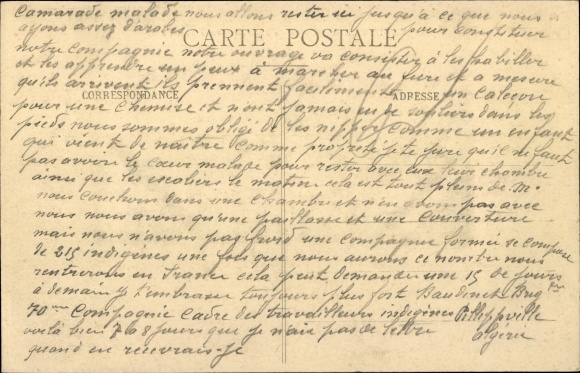 Camarade malade nous allons rester ici jusqu'à ce que nous
ayons assez d'arabes pour constituer
CARTE POSTALE
notre compagnie notre ouvrage va consister à les habiller
et les apprendre un peux à marcher au fure et a mesure
qu'ils arrivent ils prennent seulement un caleçon
CORRESPONDANCE
ADRESSE
pour une chemise et n'ont jamais eu de souliers dans les
pieds nous sommes obligé de les nipper comme un enfant
qui vient de naitre comme propreté je te jure qu'il ne faut
pas avoir le cœur malade pour rester avec eux leur chambre
ainsi que les escaliers le matin cela est tout pleins de M.
nous couchons dans une chambre et non pas avec
nous nous avons qu'une paillasse et une couverture
mais nous n'avons pas froid une compagnie formée se compose
de 215 indigènes une fois que nous aurons ce nombre nous
rentrerons en France cela peut demander une 15 de jours
à demain je t'embrasse toujours plus fort Baudinet Brig
70ème Compagnie cadre des travailleurs indigènes Philippeville
voilà bien 7 a 8 jours que je n'aie pas de lettre Algérie
quand en recevrais-je